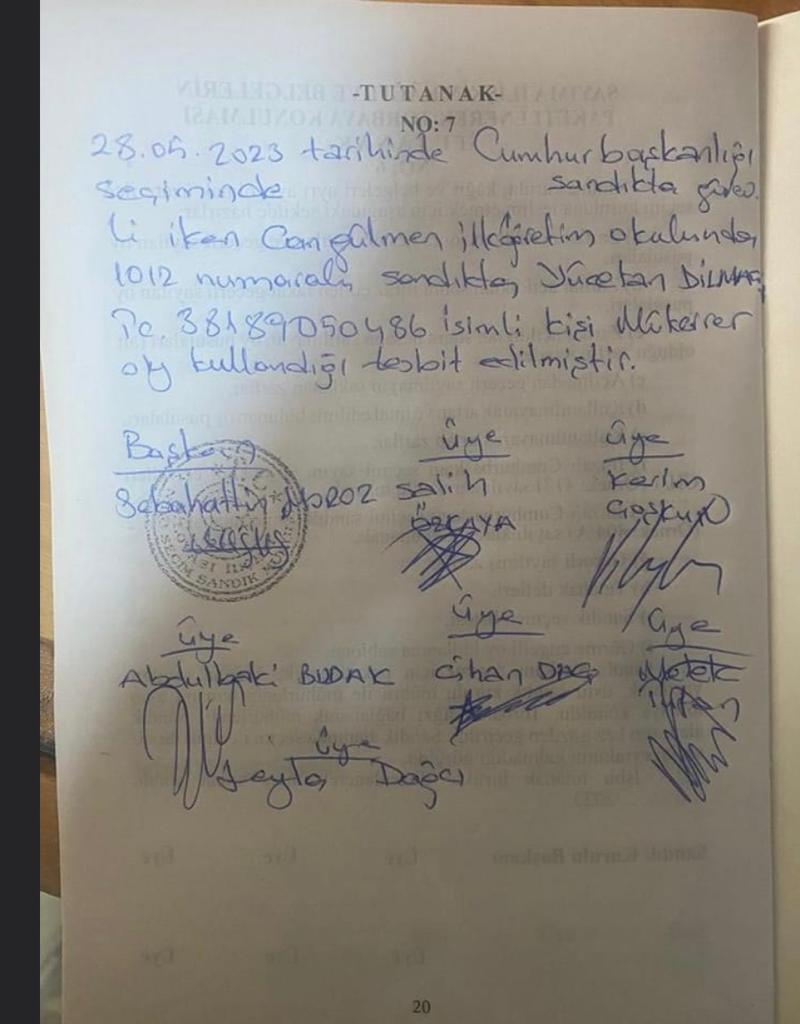 -TUTANAK-
NO: 7
28.05.2023 tarihinde Cumhurbaşkanlığı
seçiminde sandıkta görev.
li iken Cangülmen ilköğretim okulunda
1012 numaralı sandıkta, Yücetan DİLMAÇ
Tc 38189050486 isimli kişi Mükerrer
oy kullandığı tesbit edilmiştir.
Başkan Üye Üye
Sebahattin salih Kerim
ÖZKAYA Coşkun
SEÇİM SANDIK
Üye Üye Üye
Abdulbaki BUDAK Cihan DAĞ Melek
Üye
Leyla Dağcı
20